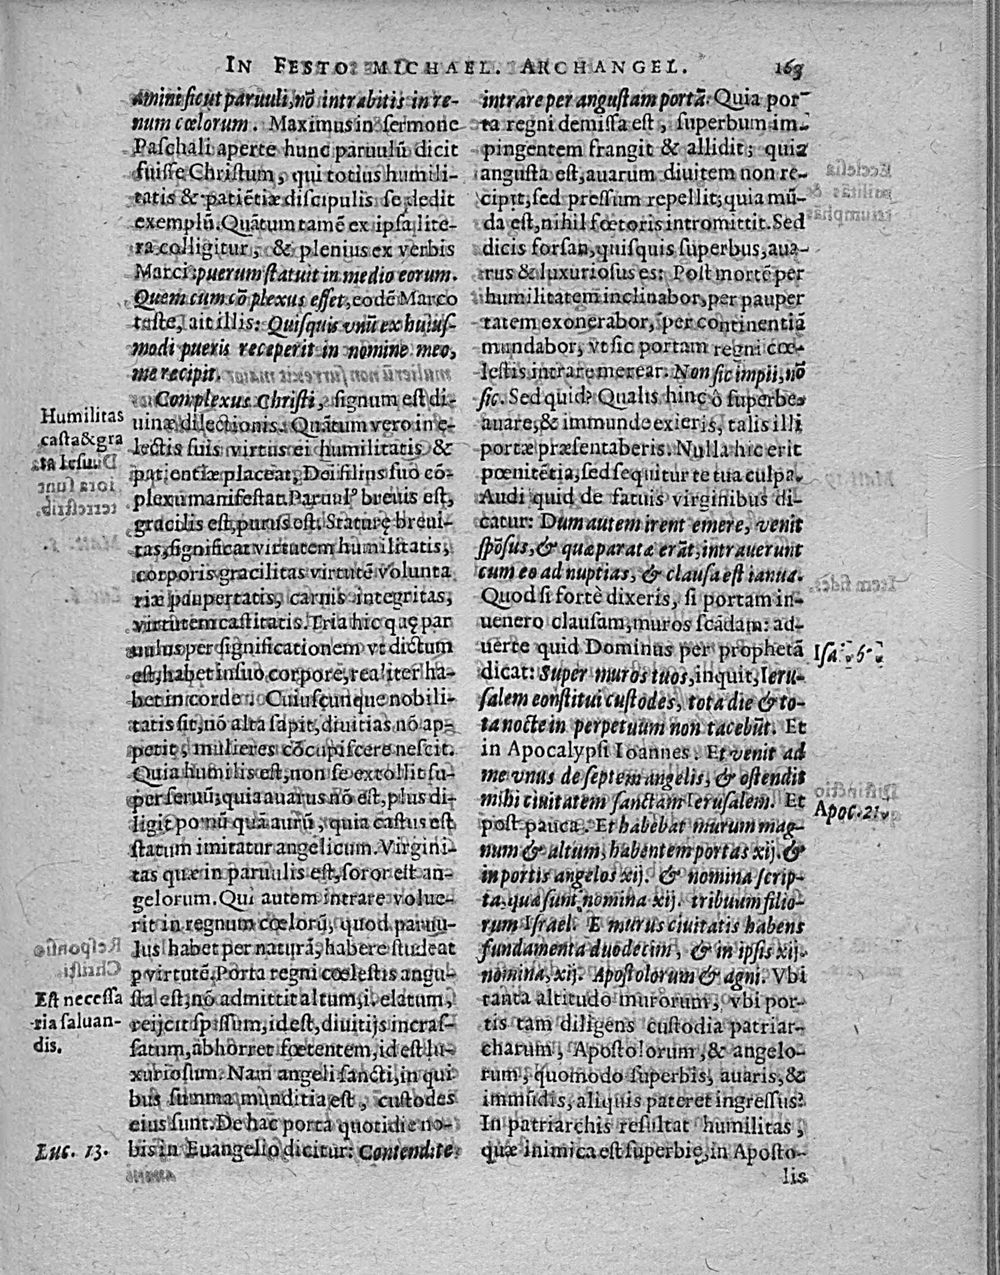 IN FESTO MICHAEL. ARCHANGEL. 169
amini sicut paruuli, nō intrabitis in re-
num cœlorum. Maximus in sermone
Paschali aperte hunc paruulū dicit
fuisse Christum, qui totius humili-
tatis & patiētiæ discipulis se dedit
exemplū. Quātum tamē ex ipsa lite-
ra colligitur, & plenius ex verbis
Marci: puerum statuit in medio eorum.
Quem cum cōplexus esset, eodē Marco
teste, ait illis: Quisquis vnū ex huius-
modi pueris receperit in nomine meo,
me recipit.
Complexus Christi, signum est di-
uinæ dilectionis. Quātum vero in e-
lectis suis virtus ei humilitatis &
patientiæ placeat, Dei filius suo cō-
plexu manifestat. Paruulꝰ breuis est,
gracilis est, purus est. Staturę breui-
tas, significat virtutem humilitatis,
corporis gracilitas virtutē volunta
riæ paupertatis, carnis integritas,
virtutem castitatis. Tria hic quę par
uulus per significationem vt dictum
est, habet in suo corpore, realiter ha-
bet in corde. Cuiuscunque nobili-
tatis sit, nō alta sapit, diuitias nō ap-
petit, mulieres cōcupiscere nescit.
Quia humilis est, non se extollit su-
per seruū; quia auarus nō est, plus di-
ligit pomū quā aurū, quia castus est
statum imitatur angelicum. Virgini-
tas quæ in paruulis est, soror est an-
gelorum. Qui autem intrare volue-
rit in regnum cœlorū, quod paruu-
lus habet per naturā, habere studeat
p virtutē. Porta regni cœlestis angu-
sta est; nō admittit altum, i. elatum,
reijcit spissum, id est, diuitijs incras-
satum, abhorret fœtentem, id est lu-
xuriosum. Nam angeli sancti, in qui
bus summa munditia est, custodes
eius sunt. De hac porta quotidie no-
bis in Euangelio dicitur: Contendite
Humilitas
casta & gra
ta Iesu
Est necessa
ria saluan-
dis.
Luc. 13.
intrare per angustam portā. Quia por-
ta regni demissa est, superbum im-
pingentem frangit & allidit; quia
angusta est, auarum diuitem non re-
cipit, sed pressum repellit; quia mū-
da est, nihil fœtoris intromittit. Sed
dicis forsan, quisquis superbus, aua-
rus & luxuriosus es: Post mortē per
humilitatem inclinabor, per pauper
tatem exonerabor, per continentiā
mundabor, vt sic portam regni cœ-
lestis intrare merear. Non sic impij, nō
sic. Sed quid? Qualis hinc ô superbe,
auare, & immunde exieris, talis illi
portæ præsentaberis. Nulla hic erit
pœnitētia, sed sequitur te tua culpa.
Audi quid de fatuis virginibus di-
catur: Dum autem irent emere, venit
spōsus, & quæ paratæ erāt, intrauerunt
cum eo ad nuptias, & clausa est ianua.
Quod si fortè dixeris, si portam in-
uenero clausam, muros scādam: ad-
uerte quid Dominus per prophetā
dicat: Super muros tuos, inquit, Ieru-
salem constitui custodes, tota die & to-
ta nocte in perpetuum non tacebūt. Et
in Apocalypsi Ioannes. Et venit ad
me vnus de septem angelis, & ostendit
mihi ciuitatem sanctam Ierusalem. Et
post pauca. Et habebat murum mag-
num & altum, habentem portas xij. &
in portis angelos xij. & nomina scrip-
ta, quæ sunt nomina xij. tribuum filio-
rum Israel. E murus ciuitatis habens
fundamenta duodecim, & in ipsis xij.
nomina, xij. Apostolorum & agni. Vbi
tanta altitudo murorum, vbi por-
tis tam diligens custodia patriar-
charum, Apostolorum, & angelo-
rum, quomodo superbis, auaris, &
immūdis, aliquis pateret ingressus?
In patriarchis resultat humilitas,
quæ inimica est superbię, in Aposto-
lis
Isa. 6
Apoc. 21.